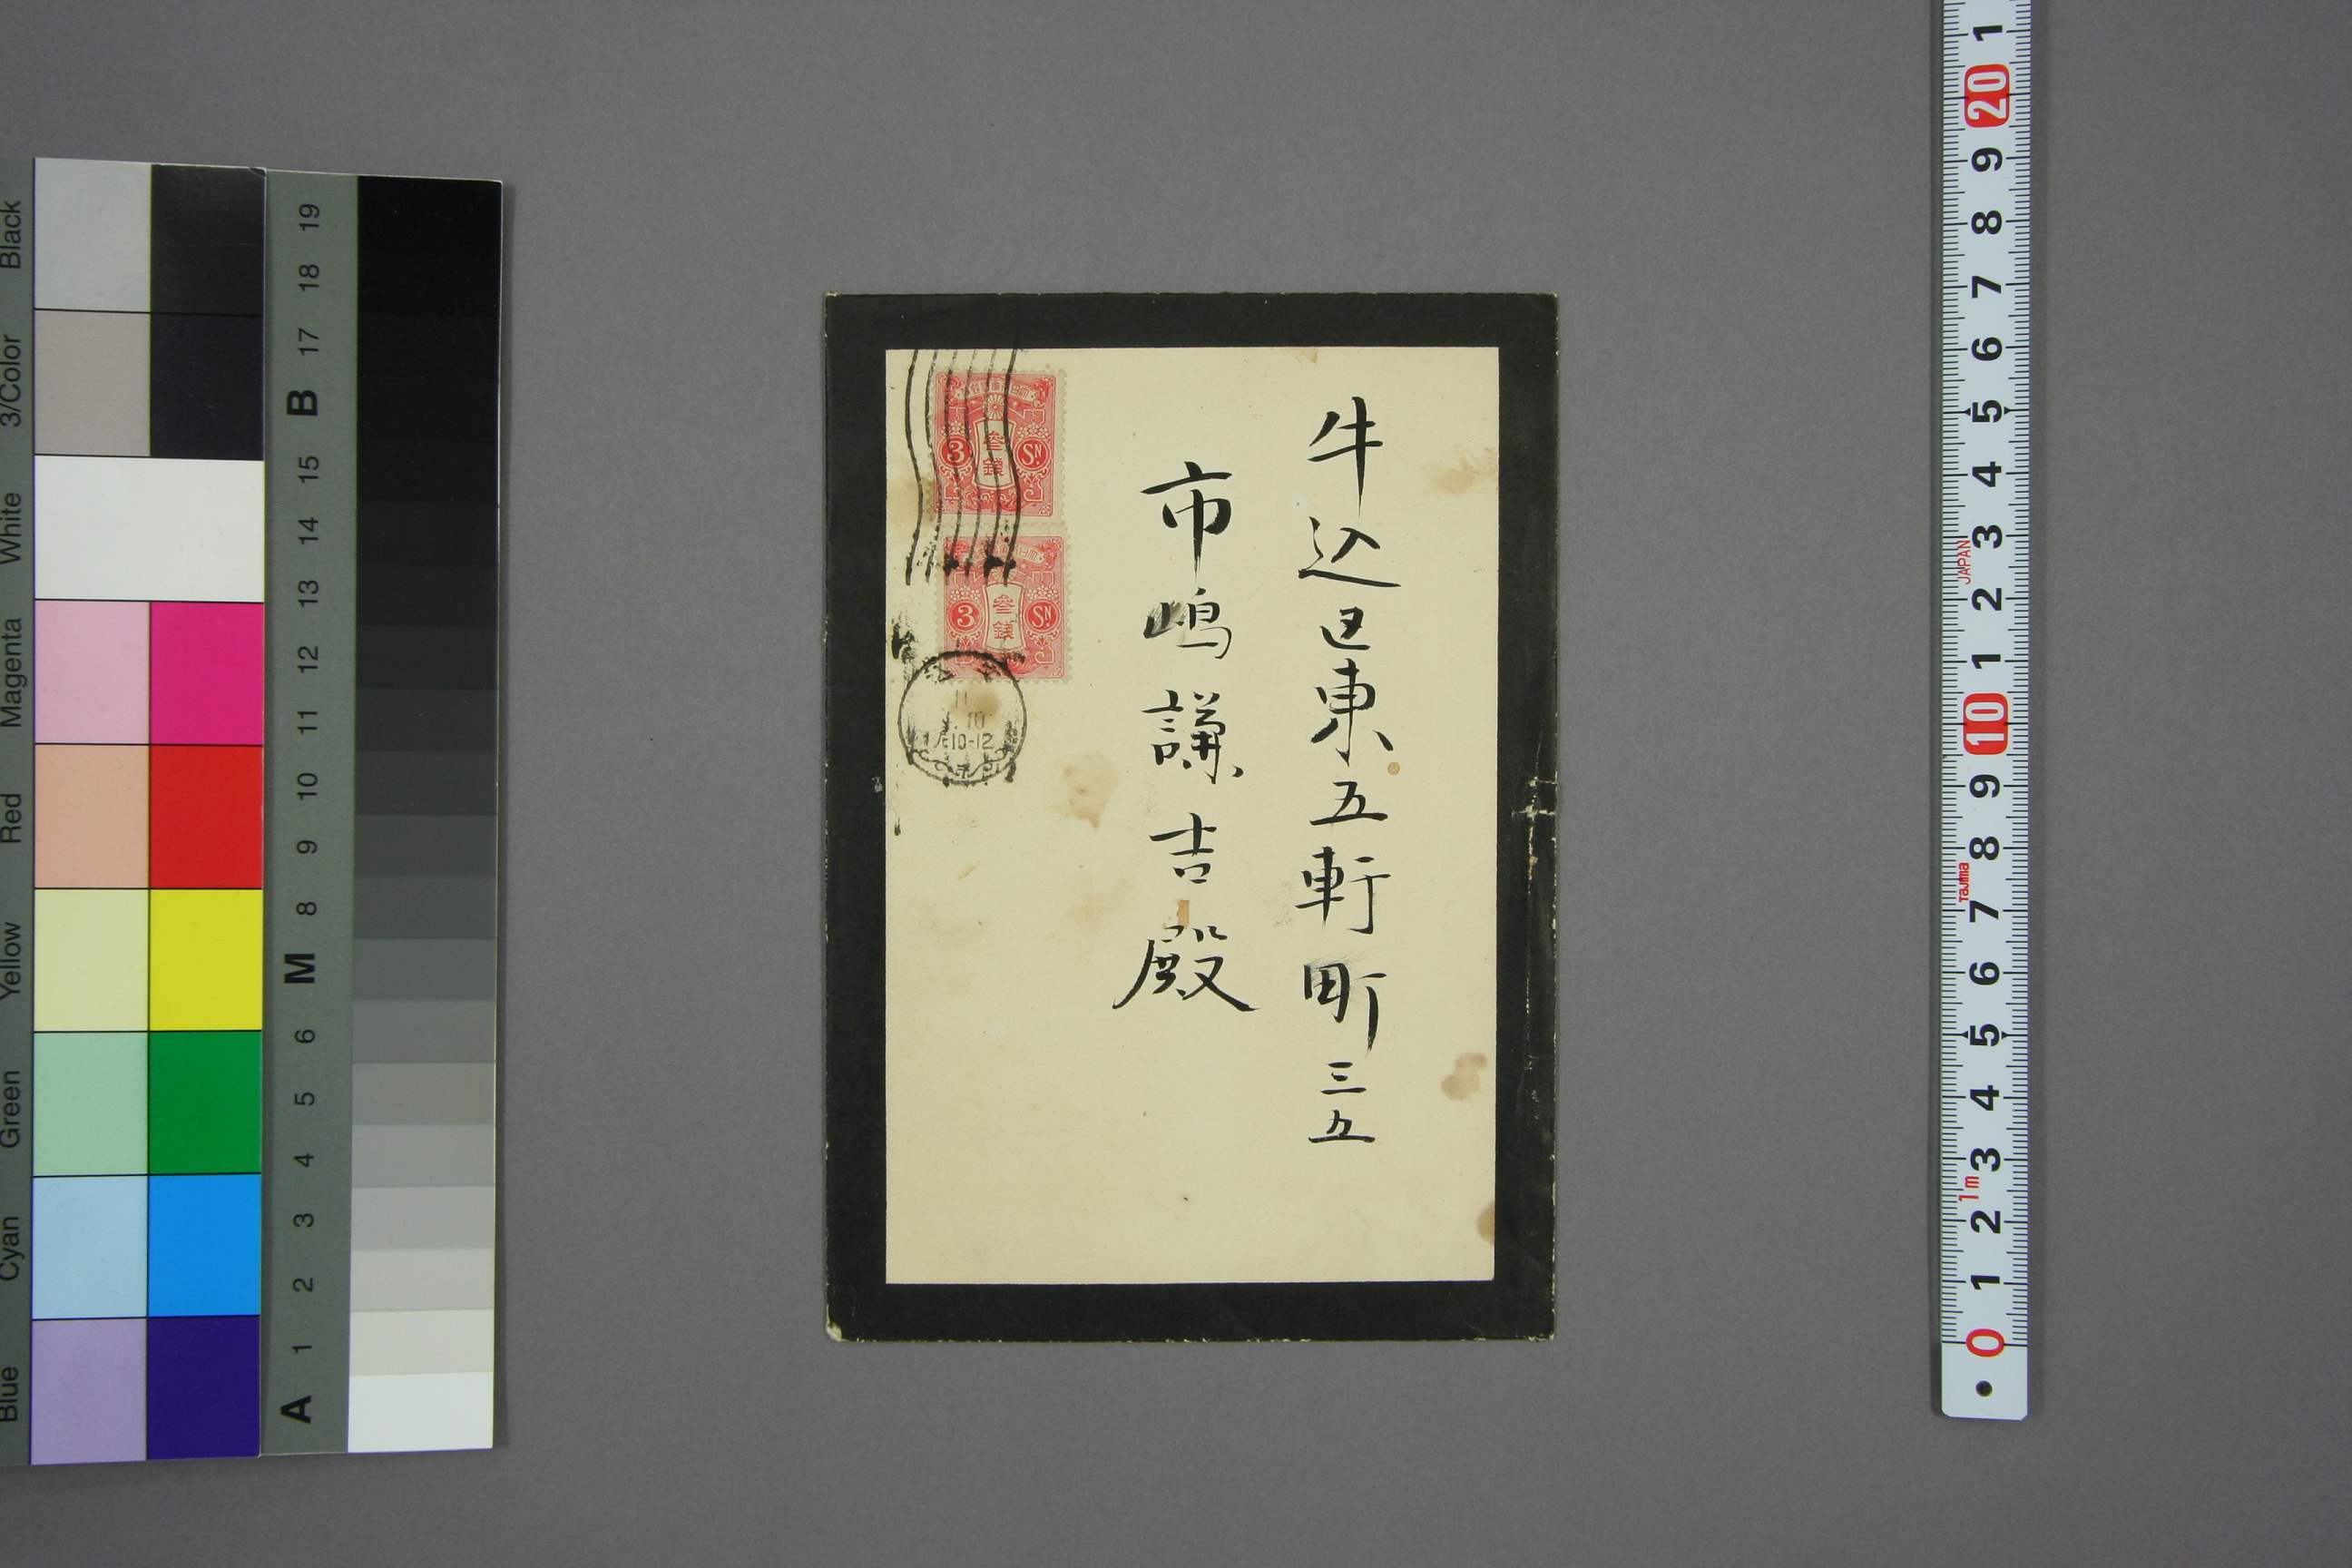 牛込区東五軒町三五
市嶋謙吉殿
3
参銭
SN
3
参銭
SN
11
10
10-12
Black
3/Color
White
Magenta
Red
Yellow
Green
Cyan
Blue
19
18
17
B
15
14
13
12
11
10
9
8
M
6
5
4
3
2
1
A
1
20
9
8
7
6
5
4
3
JAPAN
2
1
10
9
8
Tajima
7
6
5
4
3
1m
2
1
0